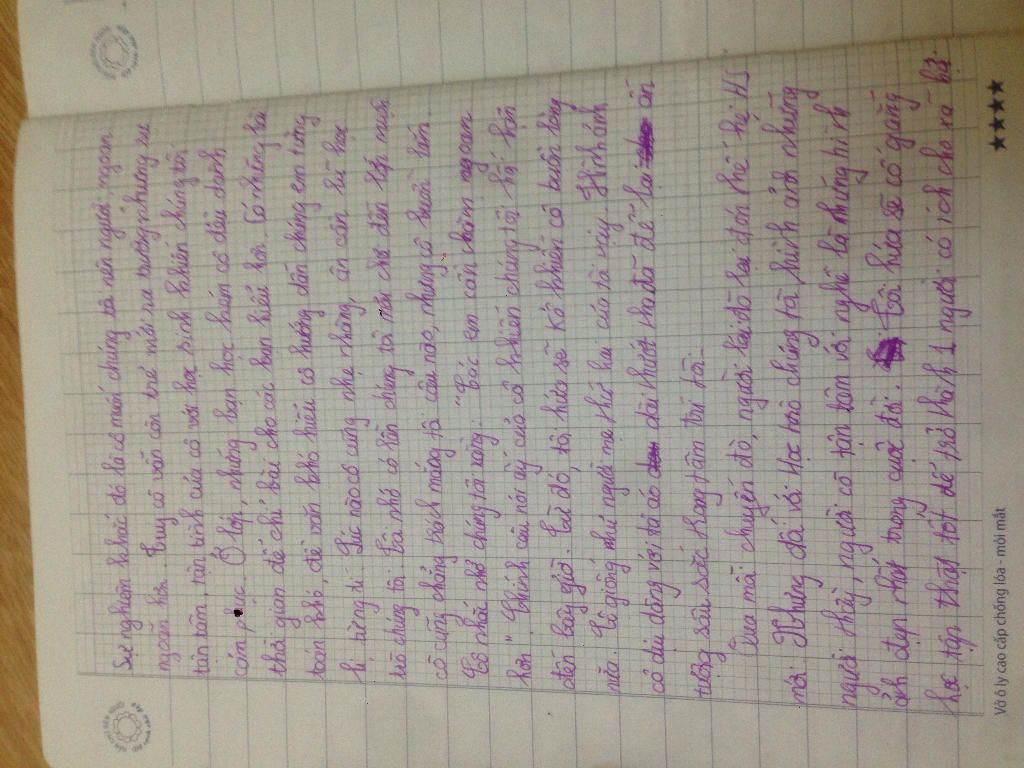 Sự nghiêm khắc đó là cô muốn chúng tôi nên người, ngoan
ngoãn hơn. Tuy cô vẫn còn trẻ mới ra trường nhưng sự
tận tâm, tận tình của cô với học sinh khiến chúng tôi
cảm phục. Ở lớp, những bạn học kém cô đều dành
thời gian để chỉ bài cho các bạn hiểu hơn. Có những bài
toán khó, đề văn khó hiểu cô hướng dẫn chúng em từng
li từng tí. Lúc nào cô cũng nhẹ nhàng, ân cần khi học
trò chúng tôi. Tôi nhớ có lần chúng tôi mải chơi đến lớp muộn
cô cũng chẳng trách mắng tôi câu nào, nhưng cô buồn lắm
Cô nhắc nhở chúng tôi rằng: "Các em cần chăm ngoan
hơn". Chính câu nói ấy của cô khiến chúng tôi hối hận
đến bây giờ. Từ đó, tôi hứa sẽ kô khiến cô buồn lòng
nữa. Cô giống như người mẹ thứ hai của tôi vậy. Hình ảnh
cô dịu dàng với tà áo dài thướt tha đã để lại ấn
tượng sâu sắc trong tâm trí tôi.
Qua mỗi chuyến đò, người lái đò lại đón thế hệ HS
mới. Nhưng đối với học trò chúng tôi hình ảnh những
người thầy, người cô tận tâm với nghề là những hình
ảnh đẹp nhất trong cuộc đời. Tôi hứa sẽ cố gắng
học tập thật tốt để trở thành 1 người có ích cho xã hội.
Vở ô ly cao cấp chống lóa - mỏi mắt